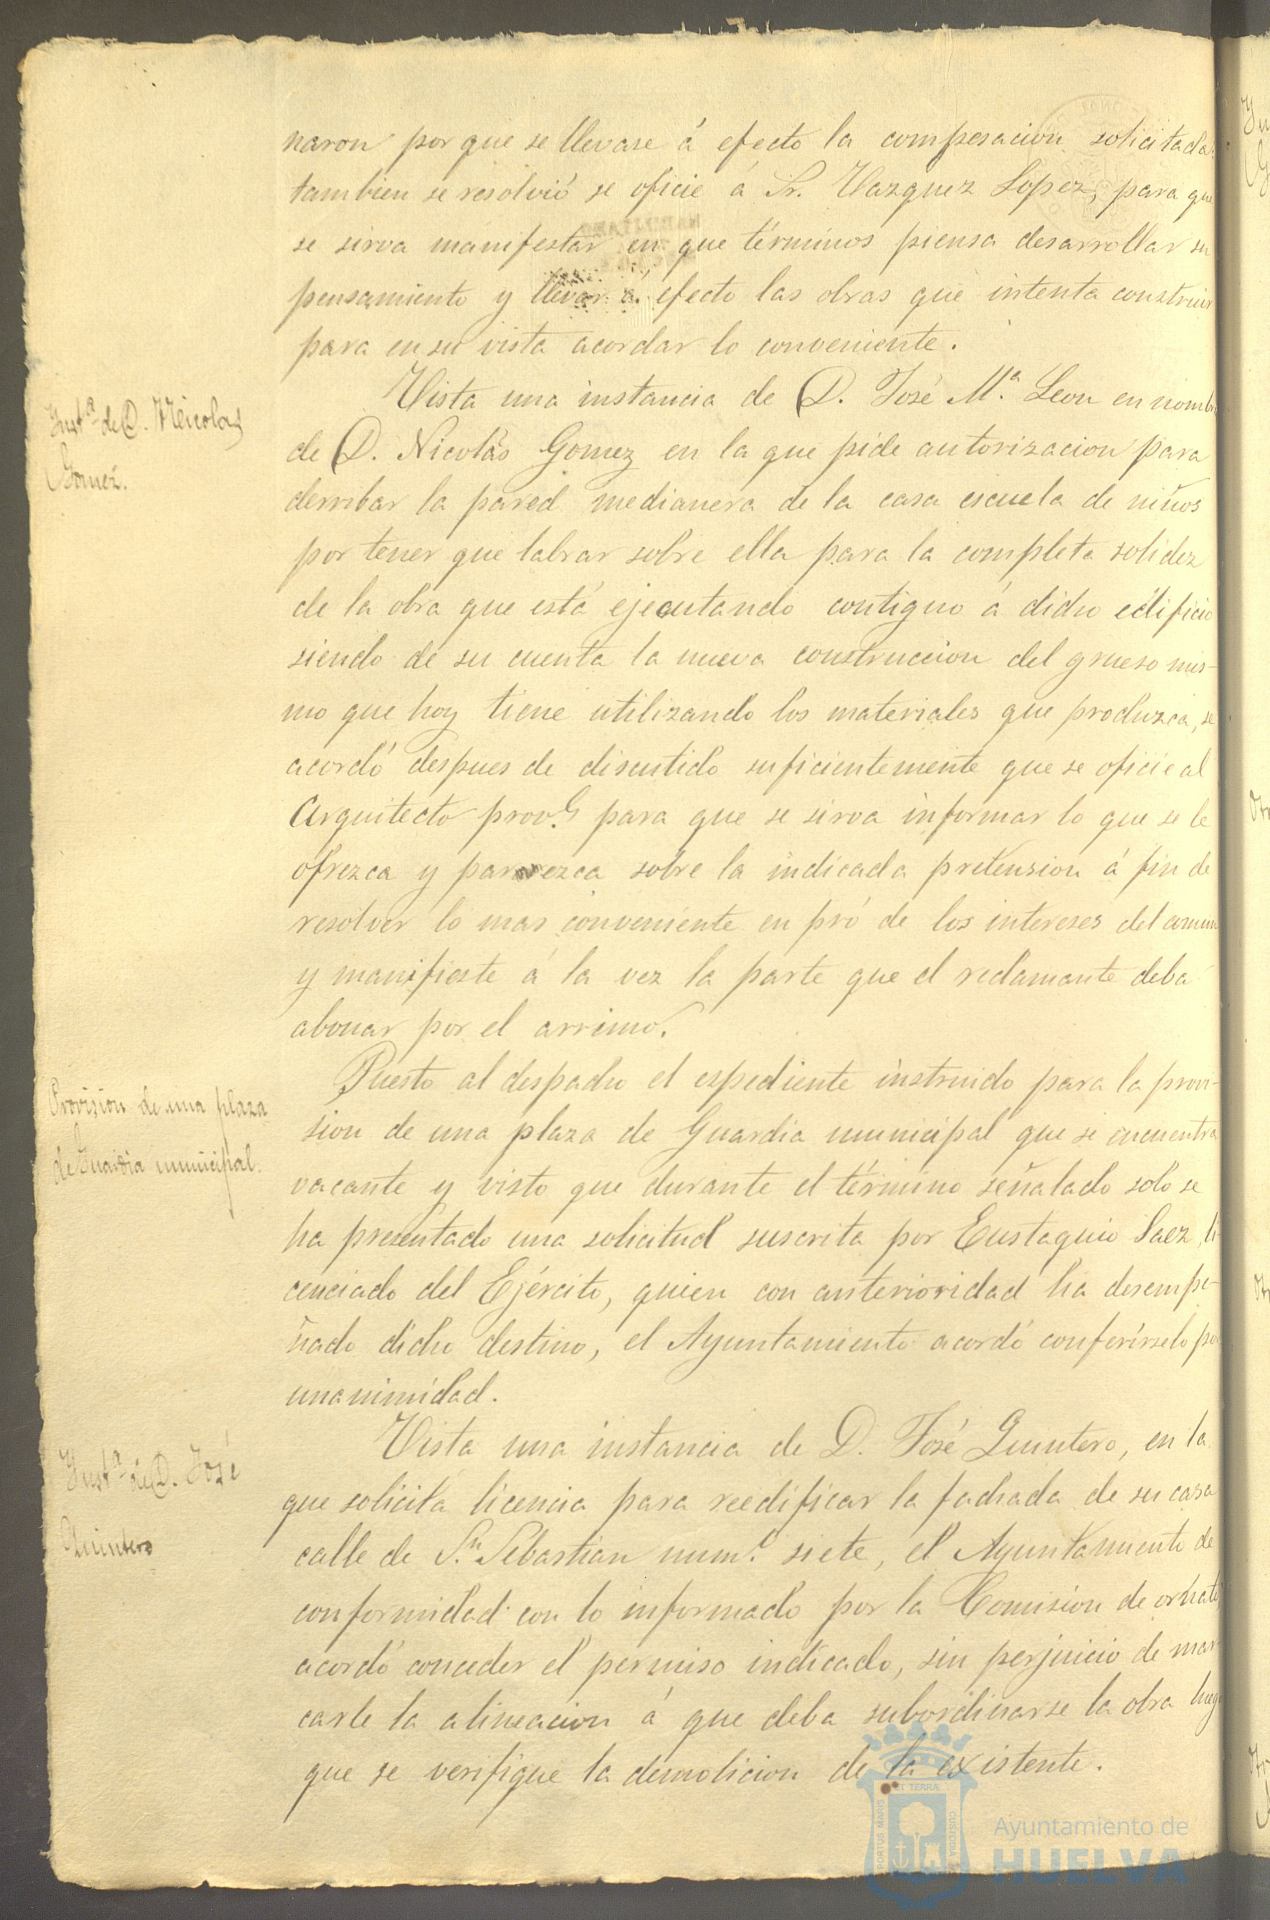 naron por que se llevase á efecto la compesacion solicitada:
tambien se resolvió se oficie á Sr. Vazquez Lopez, para que
se sirva manifestar en que términos piensa desarrollar su
pensamiento y llevar á efecto las obras que intenta construir
para en su vista acordar lo conveniente.
Inst.ª de D. Nicolas
Gomez.
Vista una instancia de D. José M.ª Leon en nombre
de D. Nicolás Gomez en la que pide autorizacion para
derribar la pared medianera de la casa escuela de niños
por tener que labrar sobre ella para la completa solidez
de la obra que está ejecutando contiguo á dicho edificio
siendo de su cuenta la nueva construccion del grueso mis-
mo que hoy tiene utilizando los materiales que produzca, se
acordó despues de discutido suficientemente que se oficie al
Arquitecto prov.l para que se sirva informar lo que se le
ofrezca y parezca sobre la indicada pretension á fin de
resolver lo mas conveniente en pró de los intereses del comun
y manifieste á la vez la parte que el reclamante deba
abonar por el arrimo.
Provision de una plaza
de Guardia municipal.
Puesto al despacho el espediente instruido para la provi-
sion de una plaza de Guardia municipal que se encuentra
vacante y visto que durante el término señalado solo se
ha presentado una solicitud suscrita por Eustaquio Saez, li-
cenciado del Ejército, quien con anterioridad ha desempe-
ñado dicho destino, el Ayuntamiento acordó conferírselo por
unanimidad.
Inst.ª de D. José
Quintero
Vista una instancia de D. José Quintero, en la
que solicita licencia para reedificar la fachada de su casa
calle de S.n Sebastian num.º siete, el Ayuntamiento de
conformidad con lo informado por la Comision de ornato
acordó conceder el permiso indicado, sin perjuicio de mar-
carle la alineacion á que deba subordinarse la obra luego
que se verifique la demolicion de la existente.
Ayuntamiento de
HUELVA